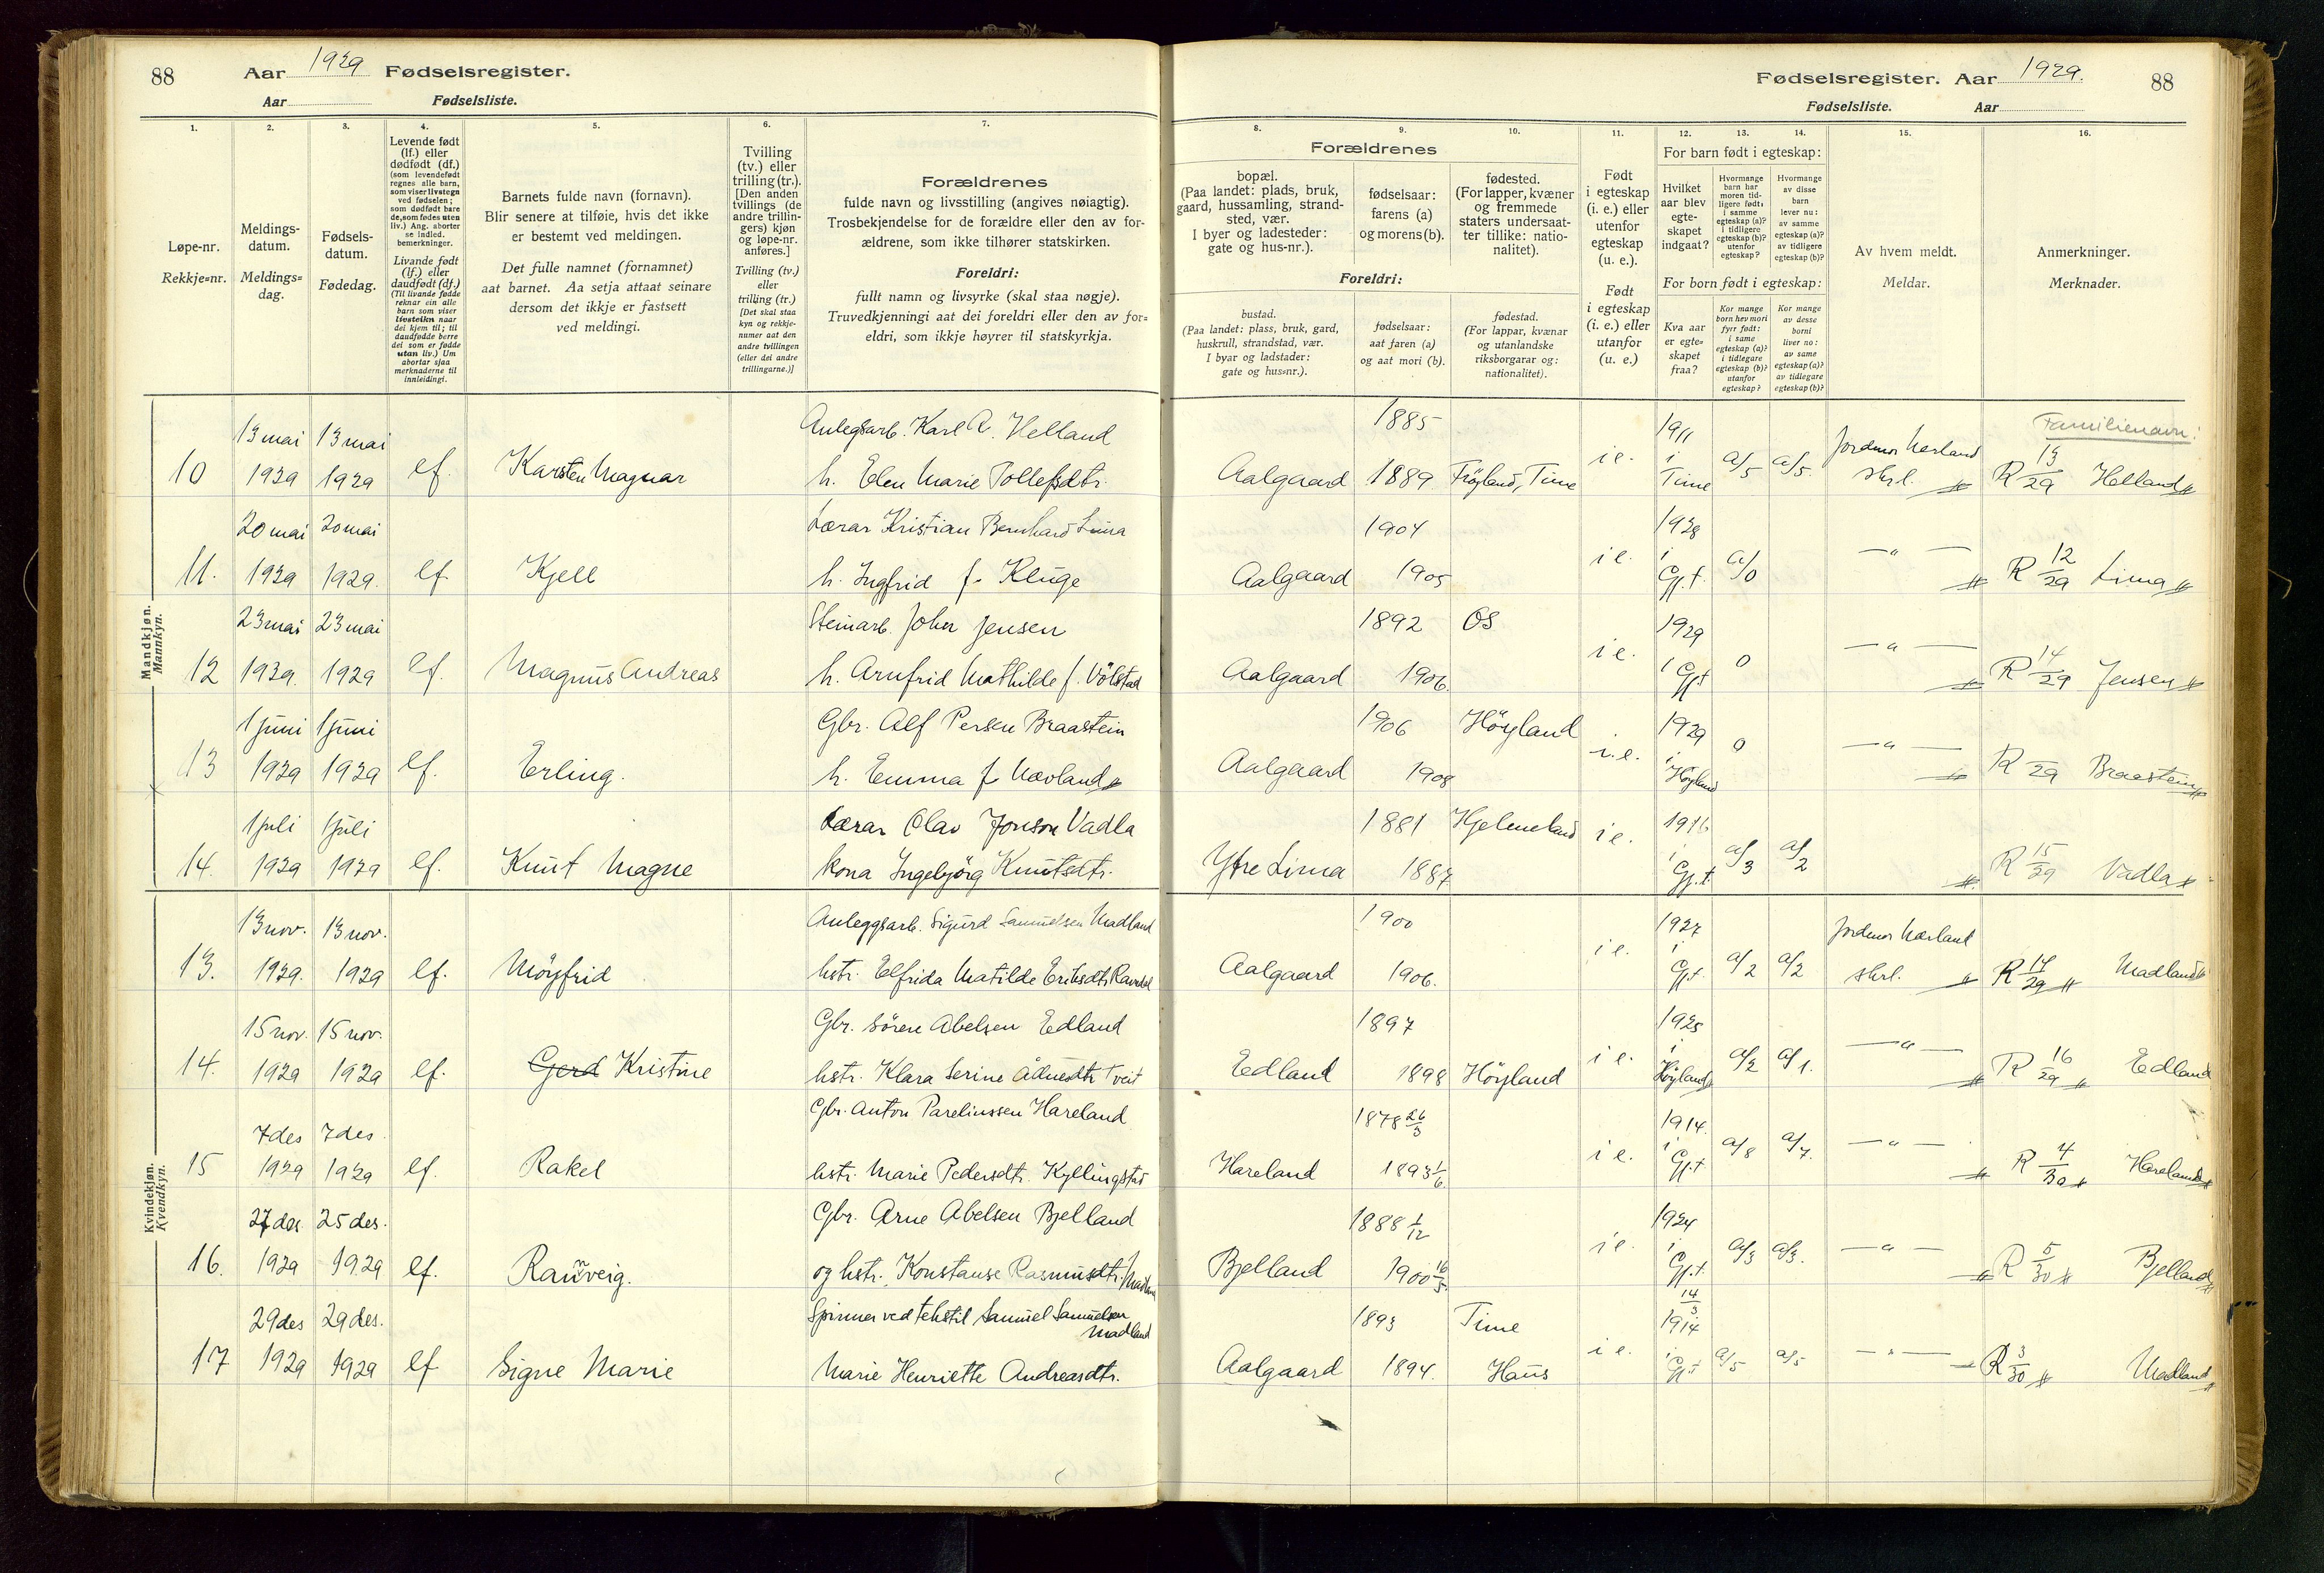 88 Aar 1929 Fødselsregister.
Aar Fødselsliste.
Fødselsregister. Aar 1929. 88
Fødselsliste. Aar
1.
Løpe-nr.
Rekkje=nr.
2.
Meldings-
datum.
Meldings=
dag.
3.
Fødsels-
datum.
Fødedag.
4.
Levende født
(lf.) eller
dødfødt (df.)
(som levendefødt
regnes alle barn,
som viser livstegn
ved fødselen;
som dødfødt bare
de, som fødes uten
liv.) Ang. aborter
se indled.
bemerkninger.
Livande født
(lf.) eller
daudfødt (df.)
(Til livande fødde
reknar ein alle
barn som viser
livsteikn naar
dei kjem til; til
daudfødde berre
dei som er fødde
utan liv.) Um
abortar sjaa
merknaderne til
innleidingi.
5.
Barnets fulde navn (fornavn).
Blir senere at tilføie, hvis det ikke
er bestemt ved meldingen.
Det fulle namnet (fornamnet)
aat barnet. Aa setja attaat seinare
dersom det ikkje er fastsett
ved meldingi.
6.
Tvilling
(tv.) eller
trilling (tr.).
[Den anden
tvillings (de
andre trillin-
gers) kjøn
og løpe-nr.
anføres.]
Tvilling (tv.)
eller
trilling (tr.)
[Det skal staa
kyn og rekkje-
numer aat den
andre tvillingen
(eller dei andre
trillingarne.)]
7.
Forældrenes
fulde navn og livsstilling (angives nøiagtig).
Trosbekjendelse for de forældre eller den av for-
ældrene, som ikke tilhører statskirken.
Foreldri:
fullt namn og livsyrke (skal staa nøgje).
Truvedkjenningi aat dei foreldri eller den av for=
eldri, som ikkje høyrer til statskyrkja.
Forældrenes
8.
bopæl.
(Paa landet: plads, bruk,
gaard, hussamling, strand-
sted, vær.
I byer og ladesteder:
gate og hus-nr.).
9.
fødselsaar:
farens (a)
og morens (b).
10.
fødested.
(For lapper, kvæner
og fremmede
staters undersaat-
ter tillike: natio-
nalitet).
Foreldri:
bustad.
(Paa landet: plass, bruk, gard,
huskrull, strandstad, vær.
I byar og ladstader:
gate og hus=nr.).
fødselsaar:
aat faren (a)
og aat mori (b).
fødestad.
(For lappar, kvænar
og utanlandske
riksborgarar og:
nationalitet).
11.
Født
i egteskap
(i. e.) eller
utenfor
egteskap
(u. e.).
Født
i egteskap
(i. e.) eller
utanfor
(u. e.)
12.
13.
14.
For barn født i egteskap:
Hvilket
aar blev
egte-
skapet
indgaat?
Hvormange
barn har
moren tid-
ligere født:
i samme
egteskap (a)?
i tidligere
egteskap (b)?
utenfor
egteskap?
Hvormange
av disse
barn
lever nu:
av samme
egteskap (a)?
av tidligere
egteskap (b)?
For born født i egteskap:
Kva aar
er egte=
skapet
fraa?
Kor mange
born hev mori
fyrr født:
i same
egteskap (a)?
i tidlegare
egteskap (b)?
utanfor
egteskap?
Kor mange
av desse
borni
liver no:
av same
egteskap (a)?
av tidlegare
egteskap (b)?
15.
Av hvem meldt.
Meldar.
16.
Anmerkninger.
Merknader.
Mandkjøn.
Mannkyn.
Familienavn:
13 mai 13 mai Anlegsarb. Karl A. Helland 1885 1911 Jordmor Nærland
10 1929 1929 lf. Karsten Magnar h. Elen Marie Tollefsdtr. Aalgaard 1889 Frøyland, Time i e. i Time a/5 a/5. skrl. R 13/29 Helland
20 mai 20 mai Lærar Kristian Bernhard Lima 1904 1928
11. 1929 1929. lf. Kjell h. Ingfrid f. Kluge Aalgaard 1905 i e. i Gj.t. a/0 — " — R 12/29 Lima
23 mai 23 mai Steinarb. John Jensen 1892 Os 1929
12 1929. 1929 lf. Magnus Andreas h. Arnfrid Mathilde f. Völstad Aalgaard 1906. i e. i Gjt 0 — " — R 14/29 Jensen
1 juni 1 juni Gbr. Alf Persen Braastein 1906 Höyland 1929
13 1929 1929 lf. Erling. h. Emma f. Nævland Aalgaard 1908 i.e. i Höyland 0 — " — R /29 Braastein
1 juli 1 juli Lærar Olav Jonson Vadla 1881 Hjelmeland 1916
14. 1929 1929 lf. Knut Magne kona Ingebjørg Knutsdtr. Ytre Lima 1887 i e. i Gj.t a/3 a/2 R 15/29 Vadla
Kvindekjøn.
Kvendkyn.
13 nov. 13 nov. Anleggsarb. Sigurd Samuelsen Madland 1900 1927 Jordmor Nærland
13. 1929. 1929 lf. Möyfrid hstr. Elfrida Matilde Eriksdtr Ravndal Aalgaard 1906. i e. i Gj.t. a/2 a/2 skrl. R 14/29 Madland
15 nov. 15 nov. Gbr. Sören Abelsen Edland 1897 1925
14. 1929 1929 lf. Gerd Kristine hstr. Klara Serine Ådnesdtr Tveit Edland 1898 Höyland i e. i Höyland a/2 a/1. — " — R 16/29 Edland
7 des 7 des. Gbr. Anton Parelinssen Hareland 1878 26/3 1914.
15 1929 1929 lf. Rakel hstr. Marie Pedersdtr. Kyllingstad Hareland 1893 1/6. i e. i Gj.t a/8 a/7. — " — R 4/30 Hareland
27 des 25 des. Gbr. Arne Abelsen Bjelland 1888 1/12 1924
16. 1929 1929 lf. Rannveig. og hstr. Konstanse Rasmusdtr. Bjelland 1900 16/5. i e. i Gj.t. a/3 a/3. — " — R 5/30 Bjelland
29 des 29 des. Spinner ved tekstil Samuel Samuelsen Madland 1893 Time 14/3 1914
17 1929 1929 lf Signe Marie Marie Henriette Andreasdtr. Aalgaard 1894. Haus i e. i Gj.t a/5 a/5 — " — R 3/30 Madland